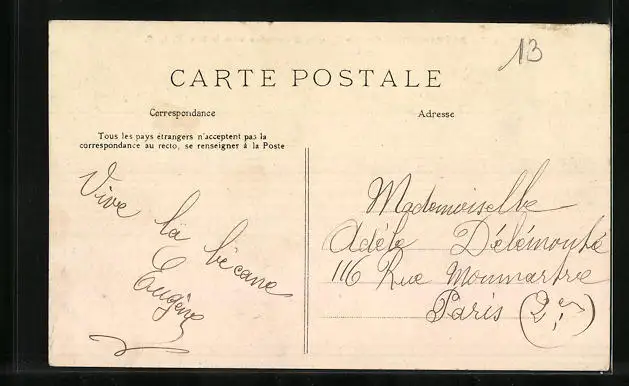 13
CARTE POSTALE
Correspondance
Adresse
Tous les pays étrangers n'acceptent pas la
correspondance au recto, se renseigner à la Poste
Vive la bécane
Eugène
Mademoiselle
Adèle Délémonté
116 Rue Monmartre
Paris (2e)